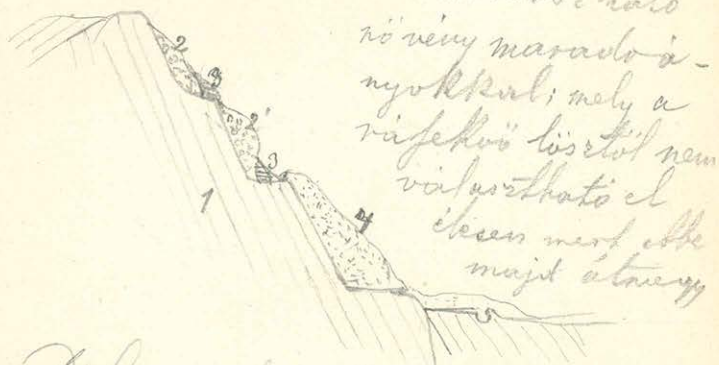 növény maradvá-
nyokkal; mely a
ráfekvő lösztől nem
választható el
élesen mert ebbe
majd átmegy
2
3
2'
3
1
4
5